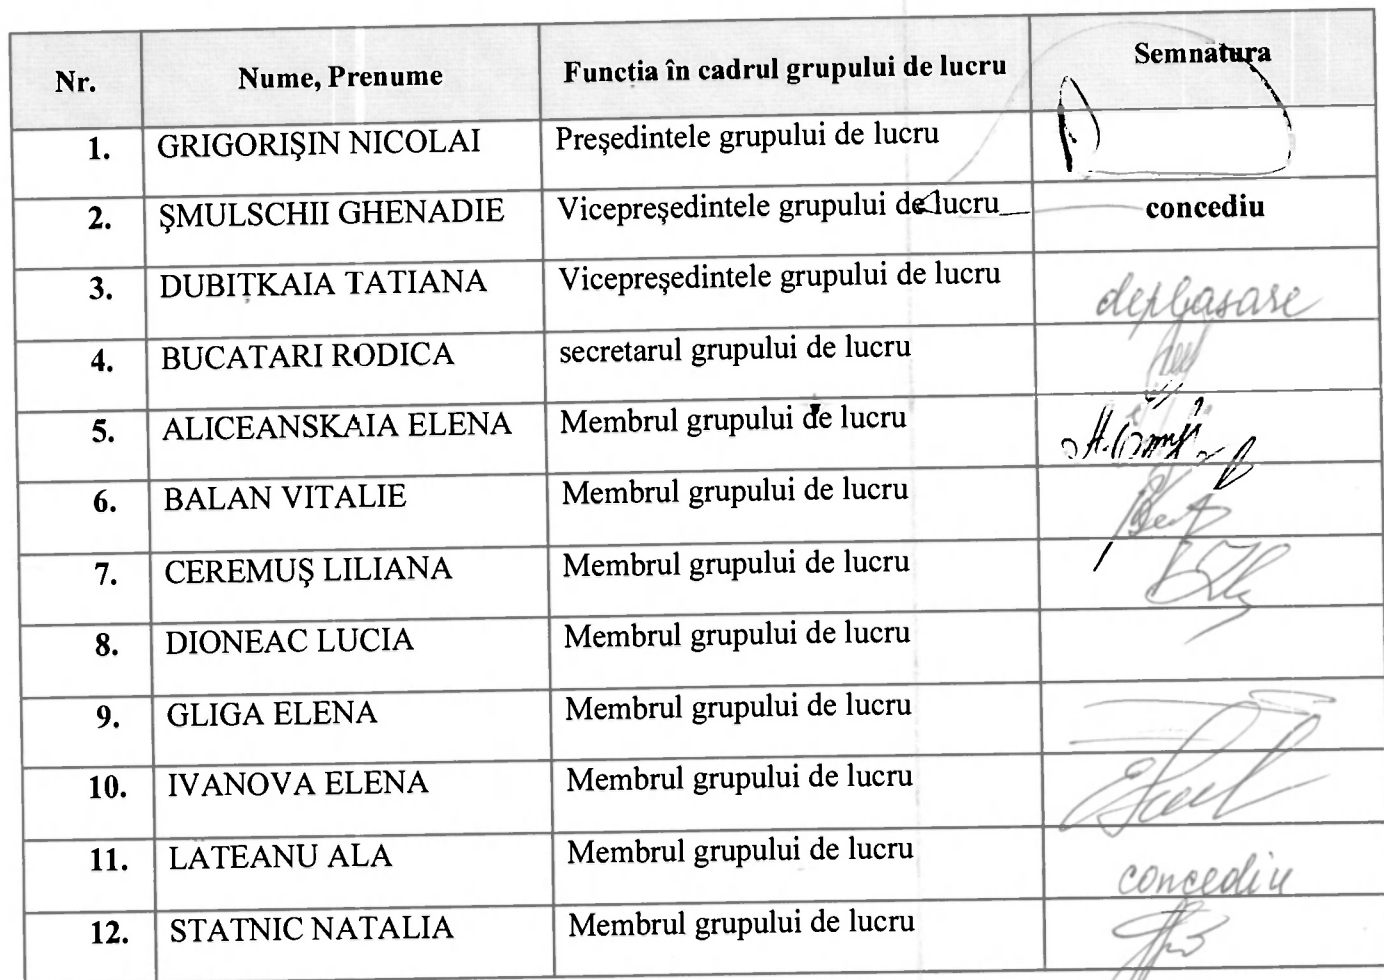 Nr. Nume, Prenume Funcția în cadrul grupului de lucru Semnatura
1. GRIGORIȘIN NICOLAI Președintele grupului de lucru
2. ȘMULSCHII GHENADIE Vicepreședintele grupului de lucru concediu
3. DUBIȚKAIA TATIANA Vicepreședintele grupului de lucru deplasare
4. BUCATARI RODICA secretarul grupului de lucru
5. ALICEANSKAIA ELENA Membrul grupului de lucru
6. BALAN VITALIE Membrul grupului de lucru
7. CEREMUȘ LILIANA Membrul grupului de lucru
8. DIONEAC LUCIA Membrul grupului de lucru
9. GLIGA ELENA Membrul grupului de lucru
10. IVANOVA ELENA Membrul grupului de lucru
11. LATEANU ALA Membrul grupului de lucru concediu
12. STATNIC NATALIA Membrul grupului de lucru